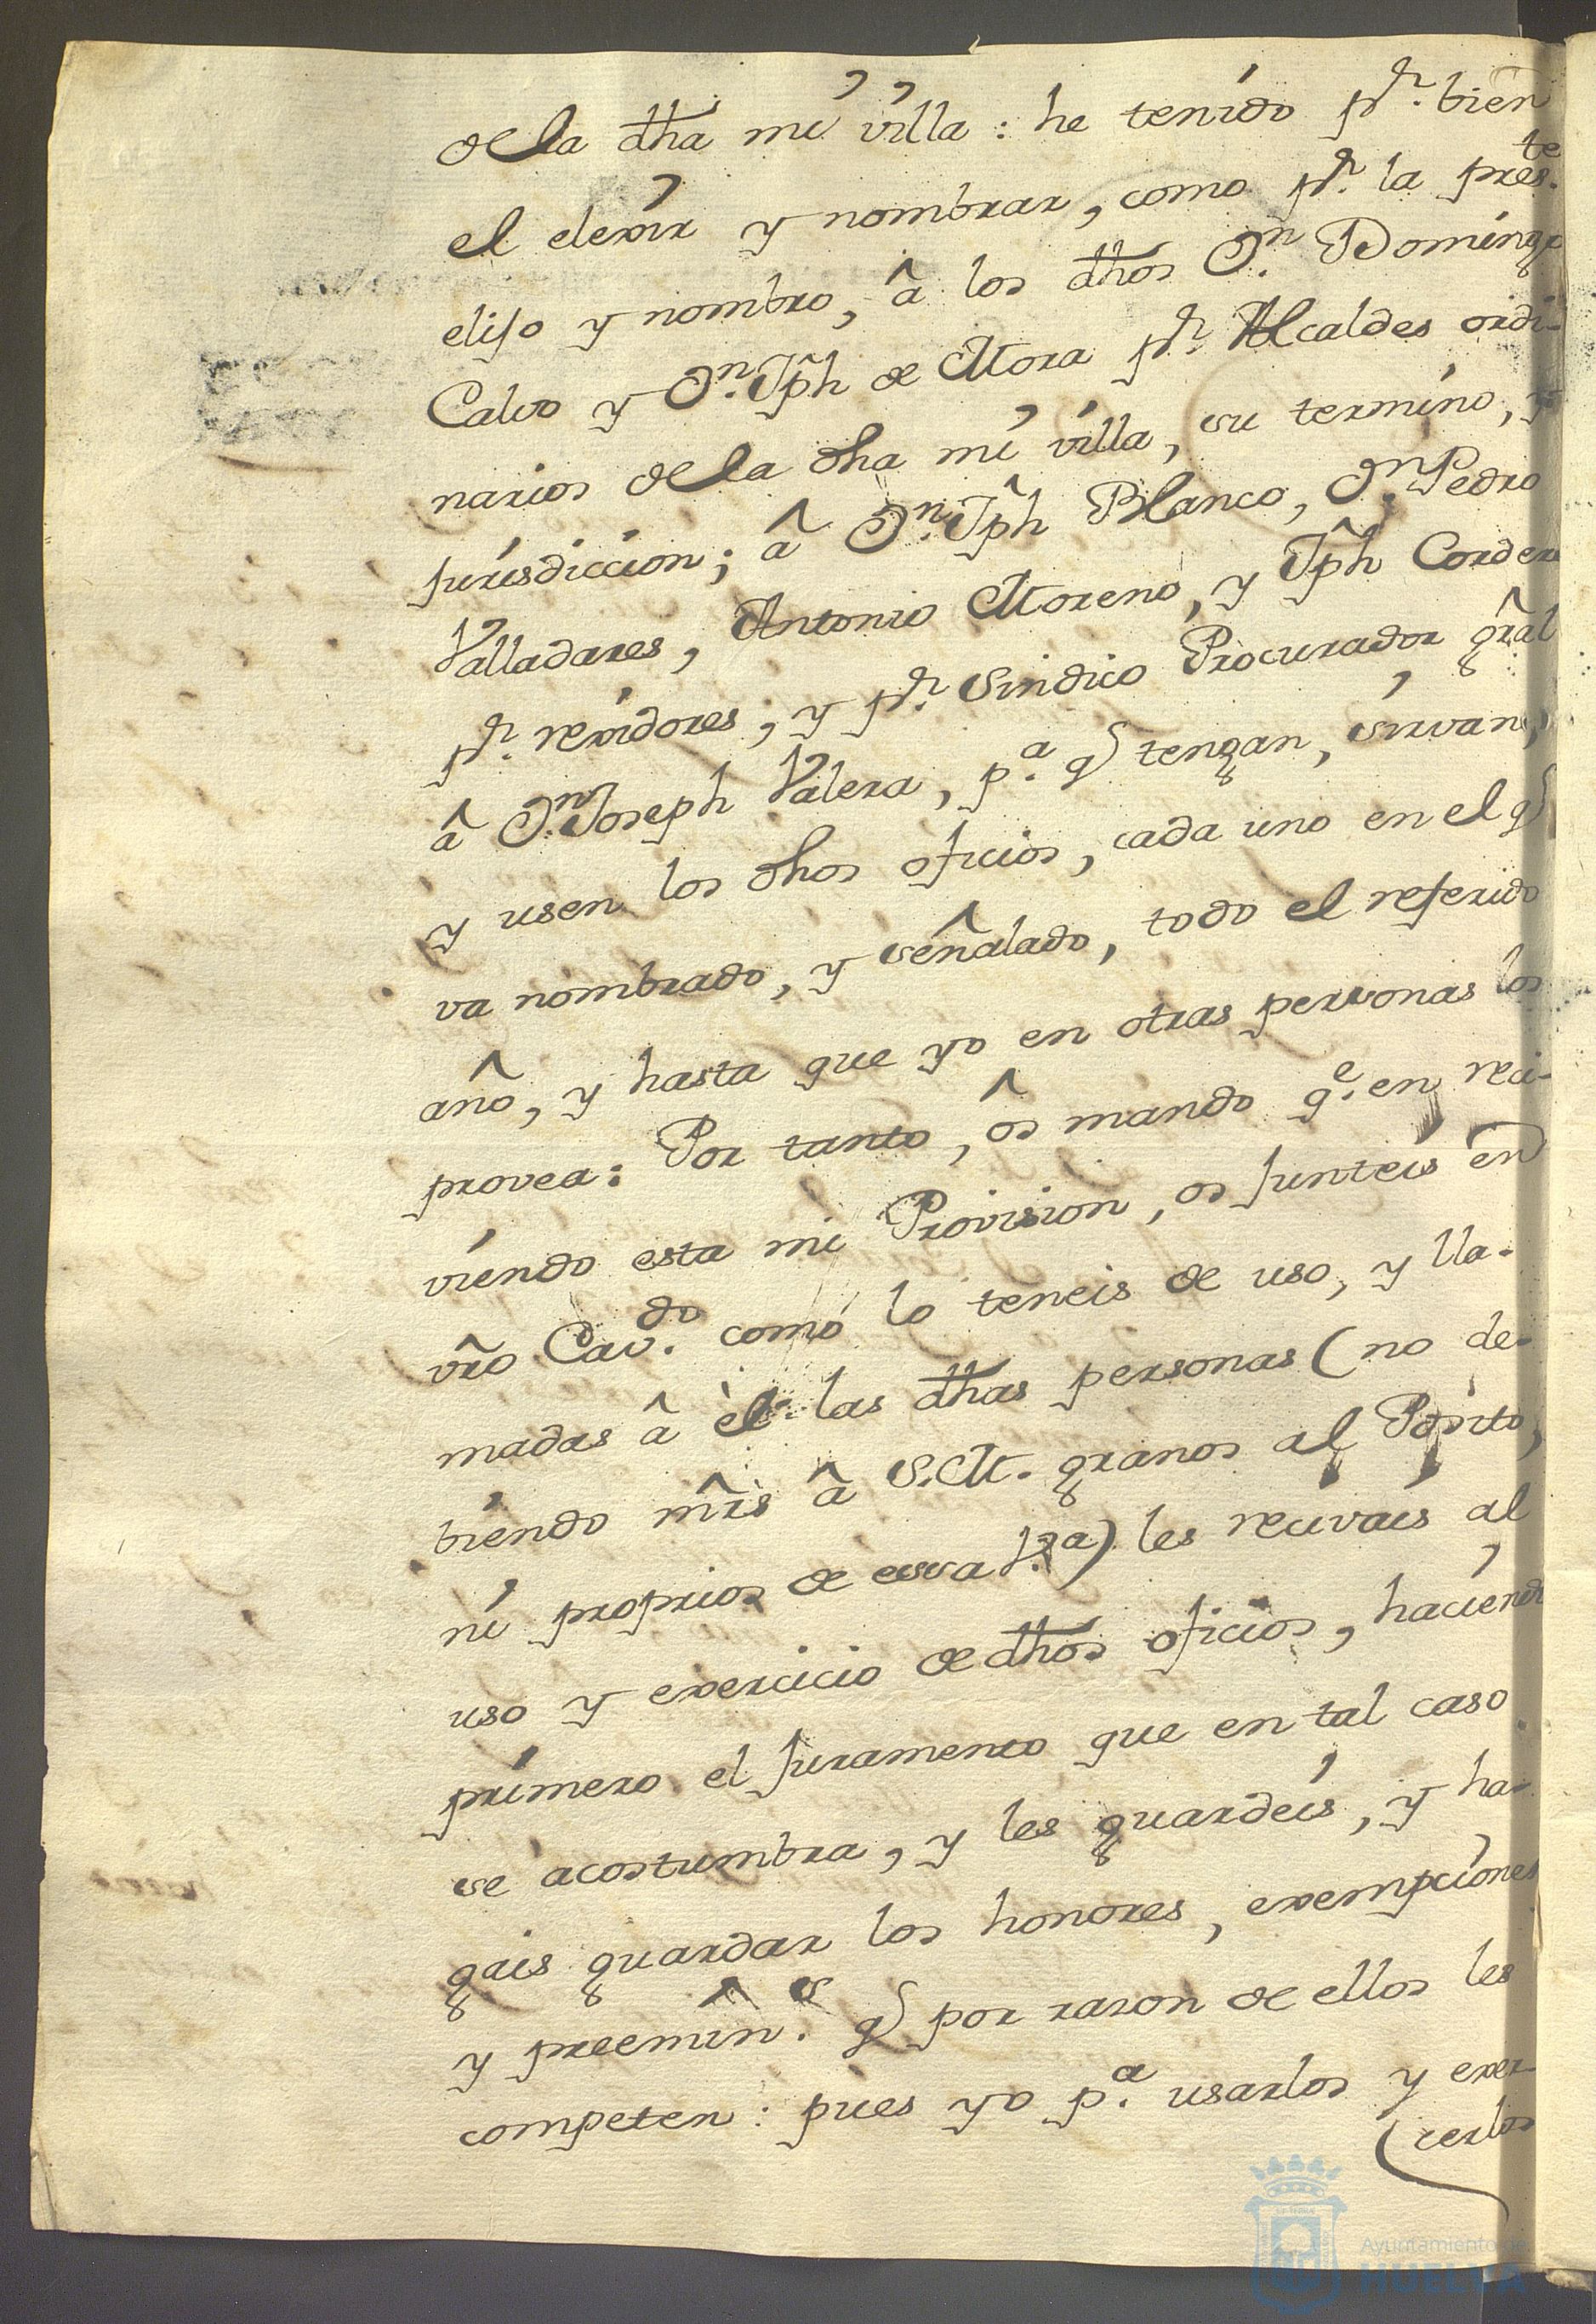 de la dha mi villa: he tenido pr. bien
el elexir y nombrar, como pr. la preste.
elijo y nombro, â los dhos Dn. Domingo
Calvo y Dn. Jph de Mora pr. Alcaldes ordi-
narios de la dha mi villa, su termino, y
jurisdiccion; â Dn. Jph Blanco, Dn. Pedro
Valladares, Antonio Moreno, y Jph Cordero
pr. rexidores; y pr. Sindico Procurador gral
â Dn. Joseph Valera, pa. q tengan, sirvan,
y usen los dhos oficios, cada uno en el q
va nombrado, y señalado, todo el referido
año, y hasta que yo en otras personas los
provea: Por tanto, ôs mando qe. en reci-
viendo esta mi Provision, os junteis en
vro Cavdo. como lo teneis de uso, y lla-
madas â èl las dhas personas (no de-
biendo mrs â S.M. granos al Posito,
ni proprios de essa Va.) les recivais al
uso y exercicio de dhos oficios, haciendo
primero el juramento que en tal caso
se acostumbra, y les guardeis, y ha-
gais guardar los honores, exempciones
y preemins. q por razon de ellos les
competen: pues yo pa. usarlos y exer-
(cerlos
Ayuntamiento de
HUELVA